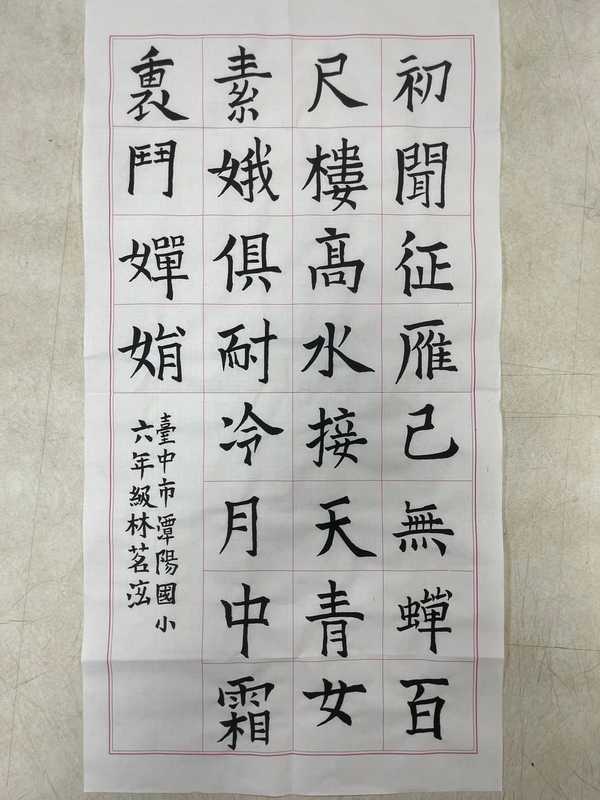 初聞征雁已無蟬百
尺樓髙水接天青女
素娥俱耐冷月中霜
裏鬥嬋娟
臺中市潭陽國小
六年級林茗